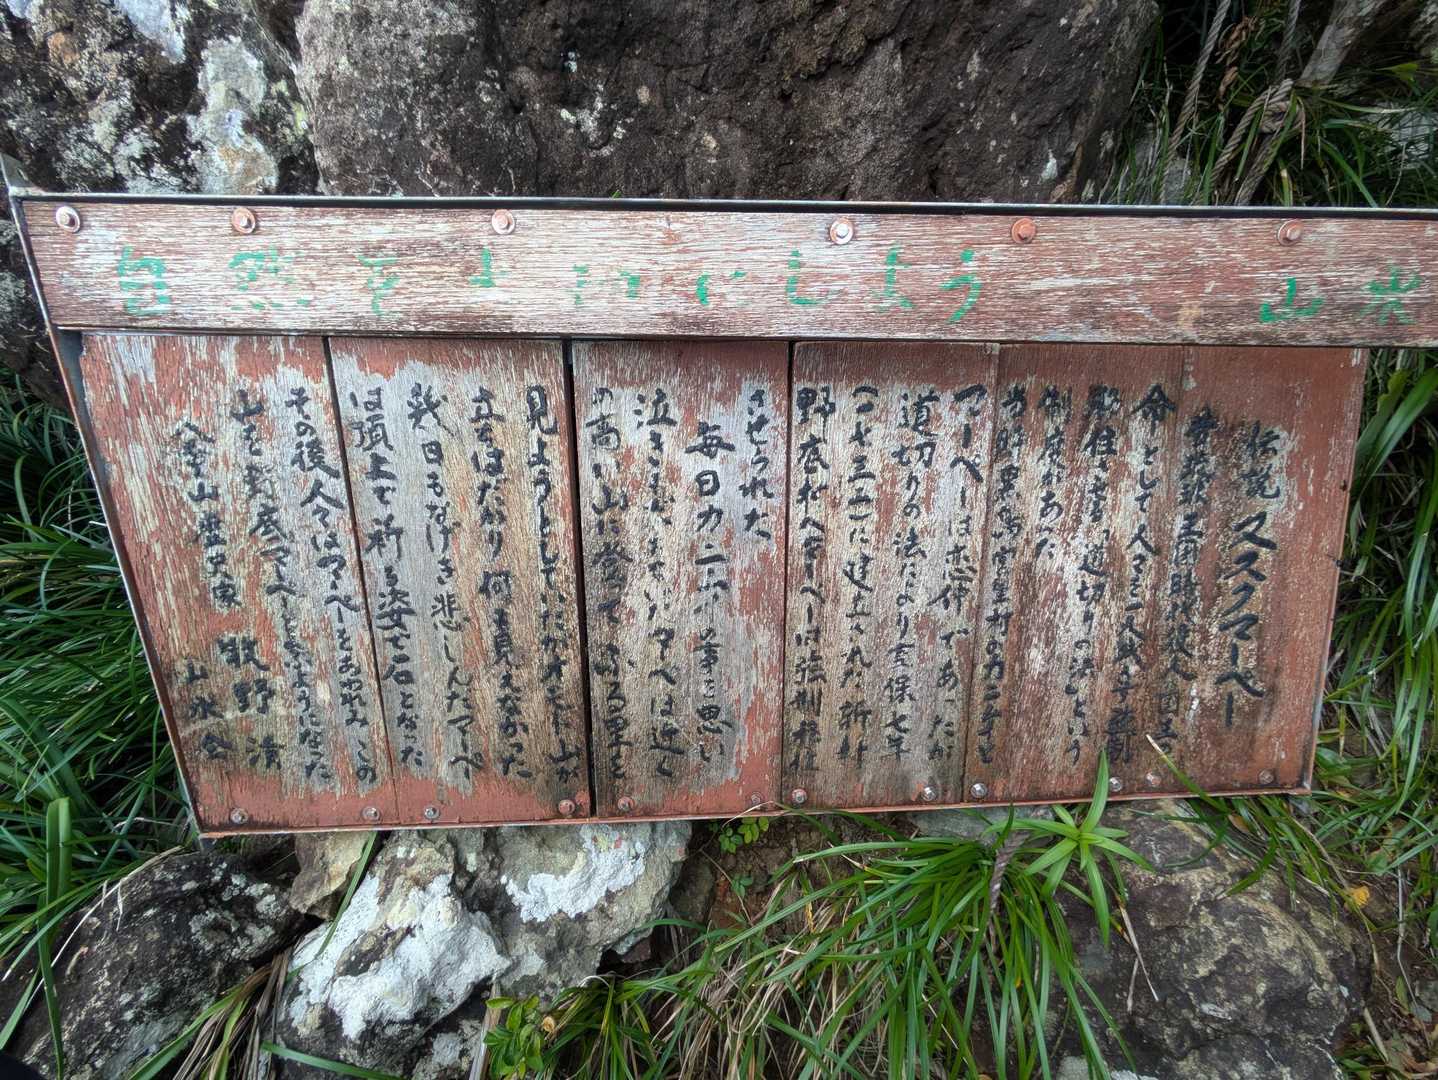 自然を大切にしよう 山氷
伝説 ヌスクマーペー
昔琉球王国時代役人が国王の
命として人々を一人残らず強制
移住する道切りの法という
制度があった
当時黒島宮里村のカニ子と
マーペーは恋仲であったが
道切りの法により享保七年
(一七三二)に建上くれた新村
野底村へマーペーは強制移住
させられた
毎日カニ子の事を思い
泣きくれていたマーペーは近く
の高い山に登って故る里を
見ようとしていたがオモト山が
立ちはだかり何も見えなかった
幾日もなげき悲しんだマーペー
は頂上で祈る姿で石となった
その後人々はマーペーをあわれみこの
山を野底マーペーと呼ぶようになった
八重山歴史家 牧野 清
山氷会